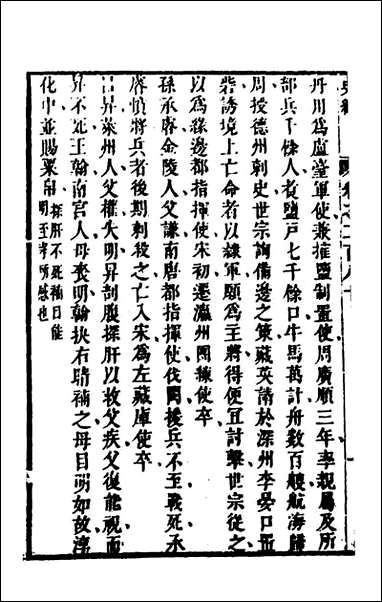 丹川爲盧臺軍使兼𣙜鹽制置使周廣順三年率親屬及所
部兵千餘人煮鹽戶七千餘口牛馬萬計舟數百艘航海歸
周授德州刺史世宗詢備邊之策藏英請於深州李晏口置
砦誘境上亡命者以隸軍願爲主將得便宜討擊世宗從之
以爲緣邊都指揮使宋初遷瀛州團練使卒
孫承睿金陵人父謙南唐都指揮使伐閩援兵不至戰死承
睿憤將兵者後期刺殺之亡入宋爲左藏庫使卒
呂昇萊州人父權失明昇剖腹探肝以救父疾父復能視而
昇不死王翰南宫人母喪明翰抉右睛補之母目明如故淳
化中並賜粟帛
探肝不死補目能
明至孝所感也